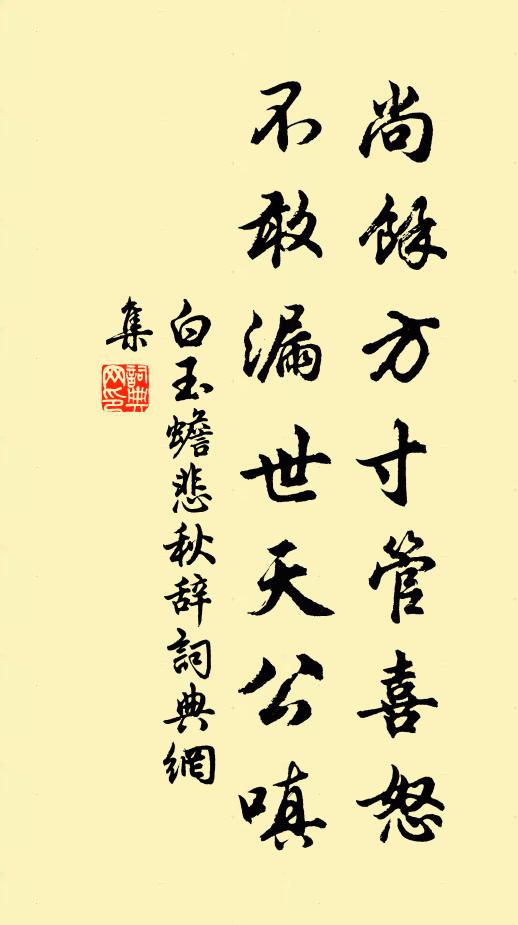 尚餘方寸管喜怒
不敢漏世天公嗔
白玉蟾悲秋辞詞典網
集
詞典
网印